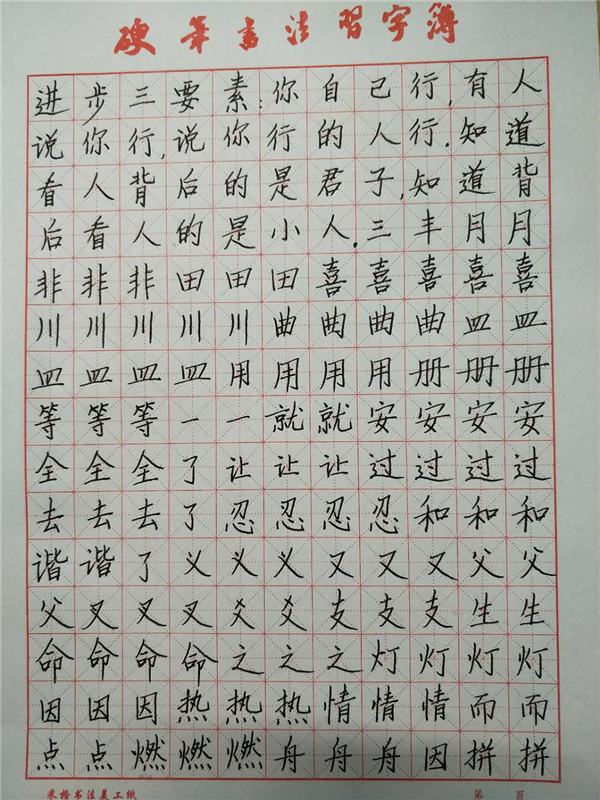 硬笔书法习字簿
进步三要素:你自己行,有人
说你行,说你行的人行.知道
看人背后的是君子,知道背
后看人的是小人.三丰月月
非非非田田田喜喜喜喜喜
川川川川川曲曲曲曲皿皿
皿皿皿皿用用用用册册册
等等等一一就就安安安安
全全全了让让让过过过过
去去去了忍忍忍忍和和和
谐谐了义义义又又又父父
父叉叉叉爻爻支支支生生
命命命命之之之灯灯灯灯
因因因热热热情情情而而
点点燃燃燃舟舟舟因拼拼
米格书法美工纸
第 页